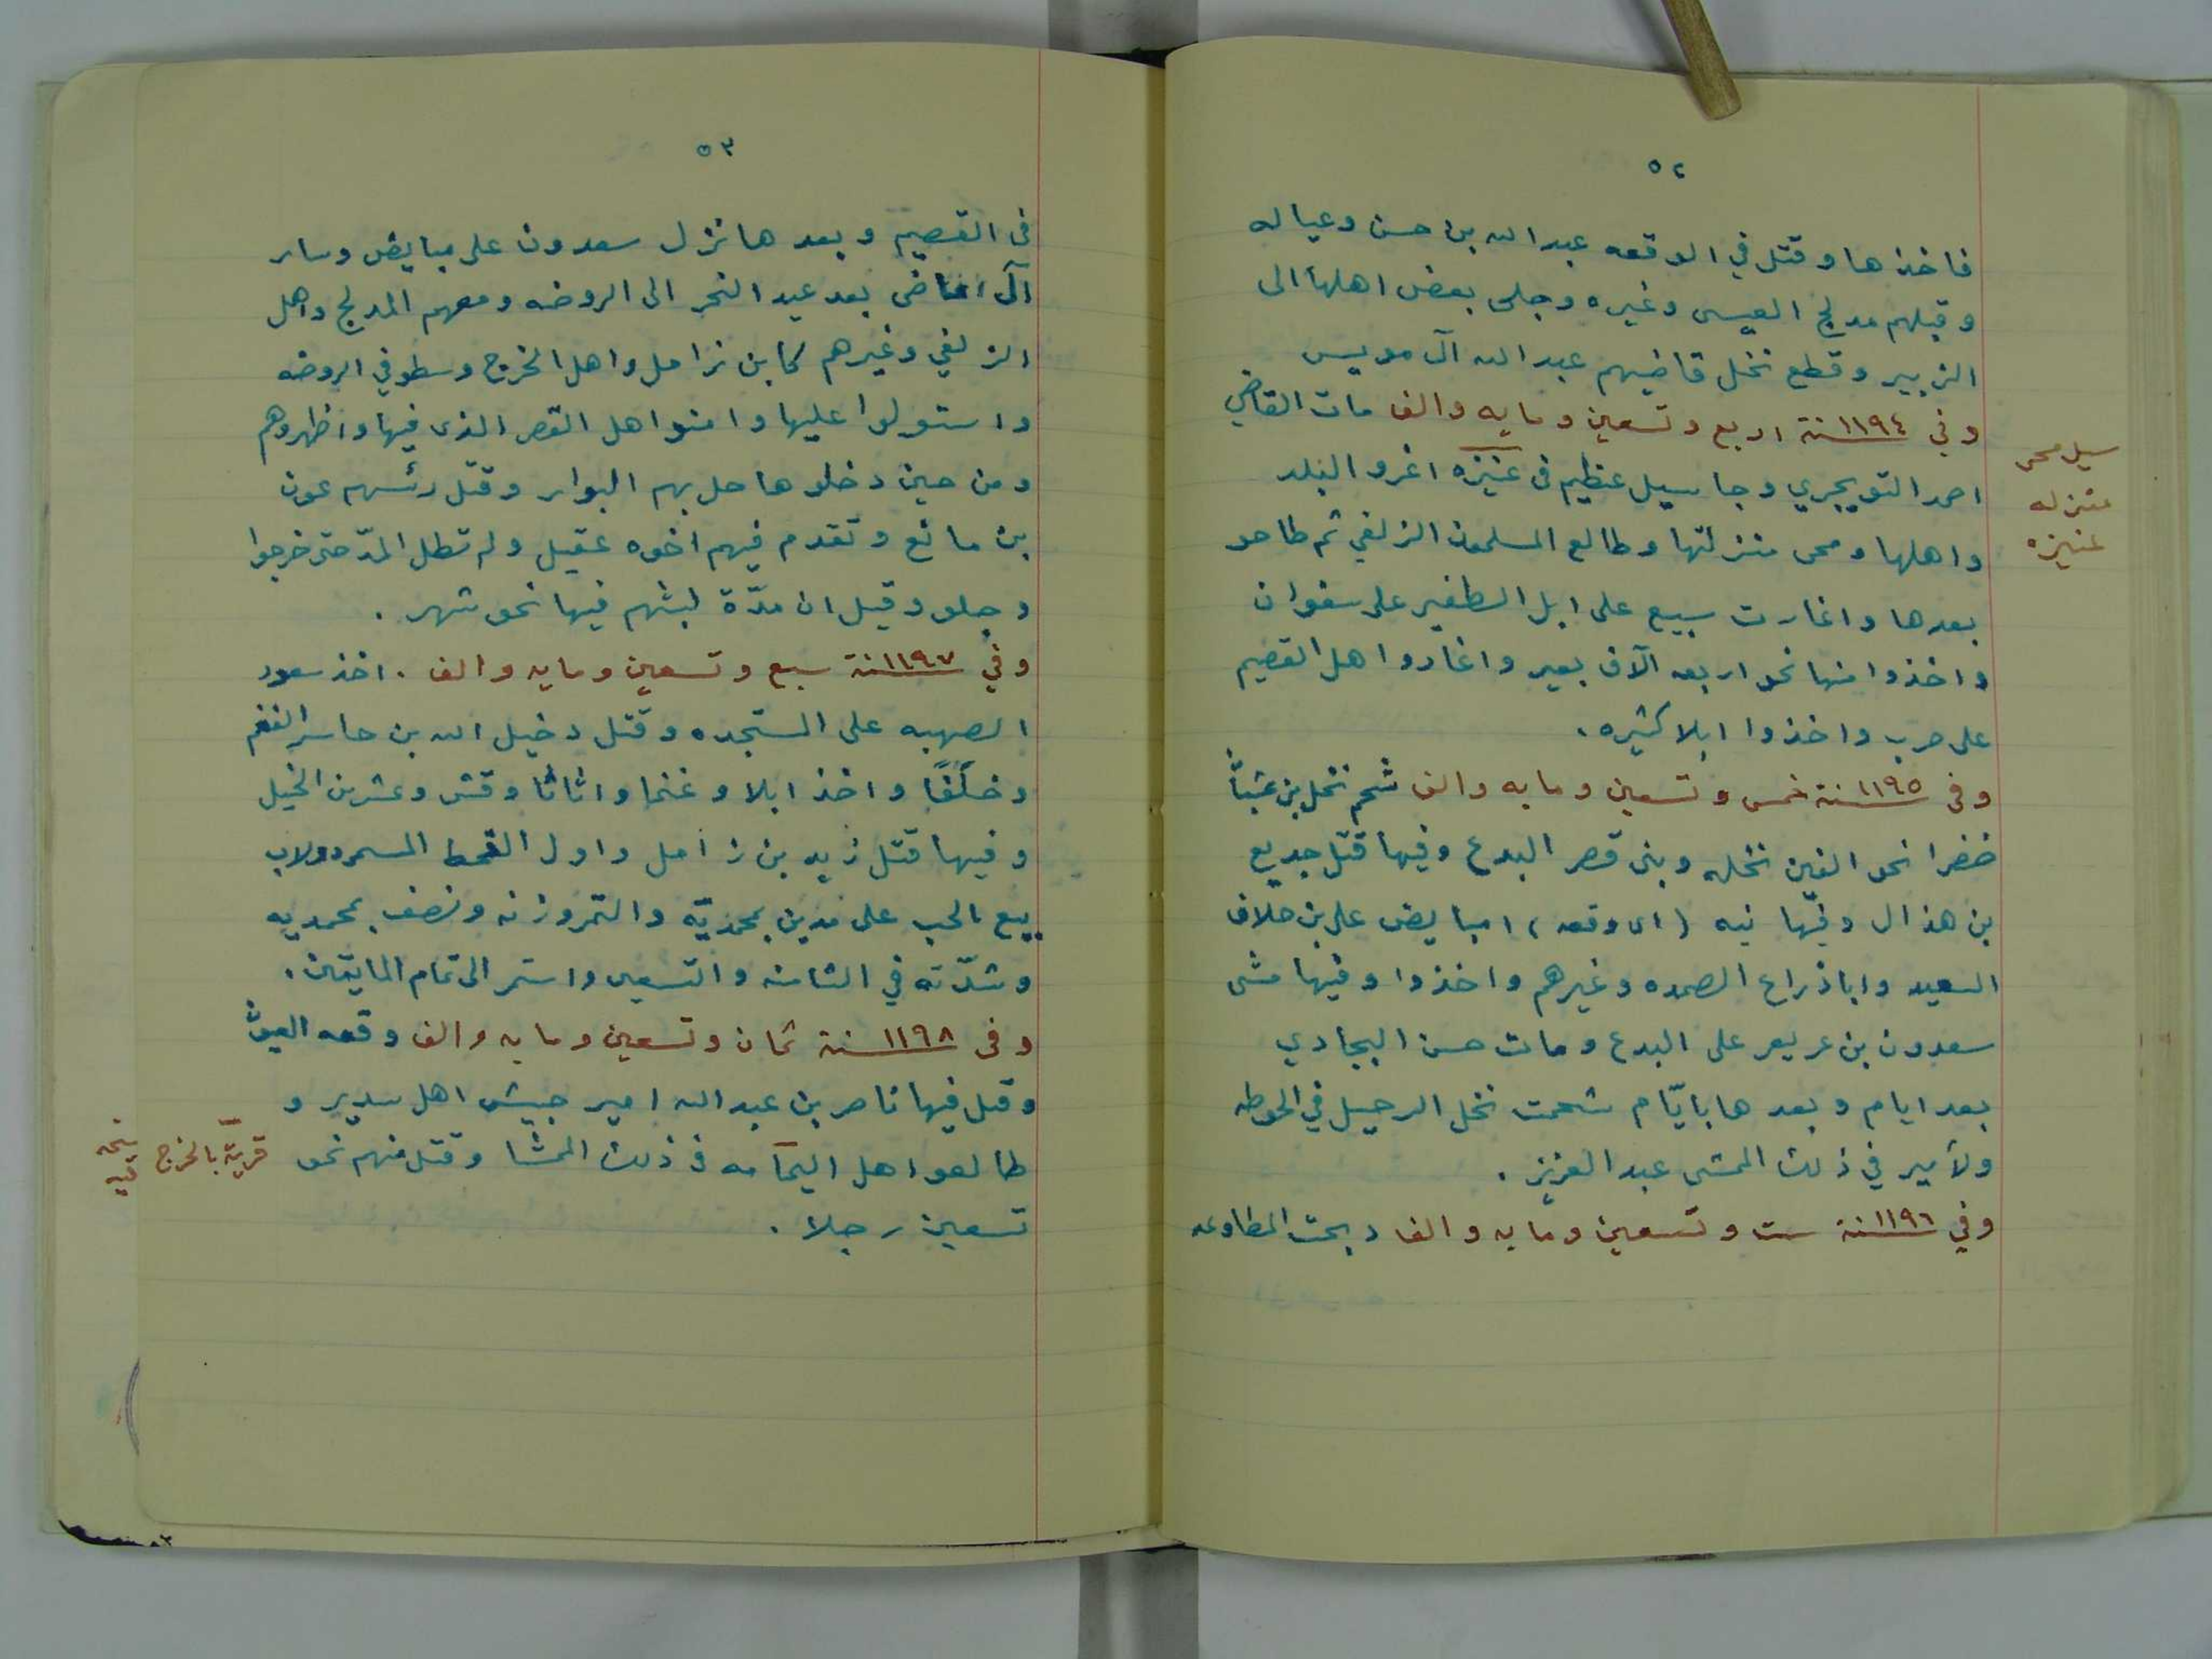 ٥٢
فاخذها وقتل في الوقعه عبدالله بن حسن وعياله
وقبلهم مدلج العيسى وغيره وجلى بعض اهلها الى
الزبير وقطع نخل قاضيهم عبدالله آل مويس
وفي ١١٩٤ سنة اربع وتسعين ومايه والف مات القاضي
احمد التويجري وجا سيل عظيم فى عنيزه اغرو البلد
واهلها ومحى منزلتها وطالع المسلمون الزلفي ثم طاحو
بعدها واغارت سبيع على ابل الظفير على سفوان
واخذوا منها نحو اربعه آلاف بعير واغاروا اهل القصيم
على حرب واخذوا ابلا كثيره .
وفى ١١٩٥ سنة خمس وتسعين ومايه والف شحم نخل بن
خضرا نحو الفين نخله وبنى قصر البدع وفيها قتل جديع
بن هذال وفيها نيه (اى وقعه) امبايض على بن حلاف
السعيد واباذراع الصمده وغيرهم واخذوا وفيها مشى
سعدون بن عريعر على البدع ومات حسن البجادي
بعد ايام وبعدها بايّام شحمت نخل الرحيل في الحوطه
ولأمير في ذلك الممشى عبدالعزيز .
وفي ١١٩٦ سنة ست وتسعين ومايه والف ذبحت المطاوعه
سيل محى
منزله
عنيزه
٥٣
فى القصيم وبعدها نزل سعدون على مبايض وسار
آل ماضى بعد عيد النحر الى الروضه ومعهم المدلج واهل
الزلفي وغيرهم كابن زامل واهل الخرج وسطو في الروضه
واستولوا عليها وامنوا اهل القصر الذى فيها واظهروهم
ومن حين دخلوها حل بهم البوار وقتل رئسهم عون
بن مانع وتقدم فيهم اخوه عقيل ولم تطل المدّ حتى خرجوا
وجلو وقيل ان مدّة لبثهم فيها نحو شهر .
وفي ١١٩٧ سنة سبع وتسعين ومايه والف . اخذ سعود
الصهبه على المستجده وقتل دخيل الله بن جاسر الفغم
وخلفًا واخذ ابلا وغنما واثاثا وقش وعشر من الخيل
وفيها قتل زيد بن زامل واول القحط المسمى دولاب
بيع الحب على مدين بمحمديّه والتمر وزنه ونصف بمحمديه
وشدّته في الثامنه والتسعين واستمر الى تمام المايتين .
وفى ١١٩٨ سنة ثمان وتسعين ومايه والف وقعه العيوث
وقتل فيها ناصر بن عبدالله امير جيش اهل سدير و
طالعو اهل اليمامه فى ذلك الممشا وقتل منهم نحو
تسعين رجلا .
قريّة بالخرج